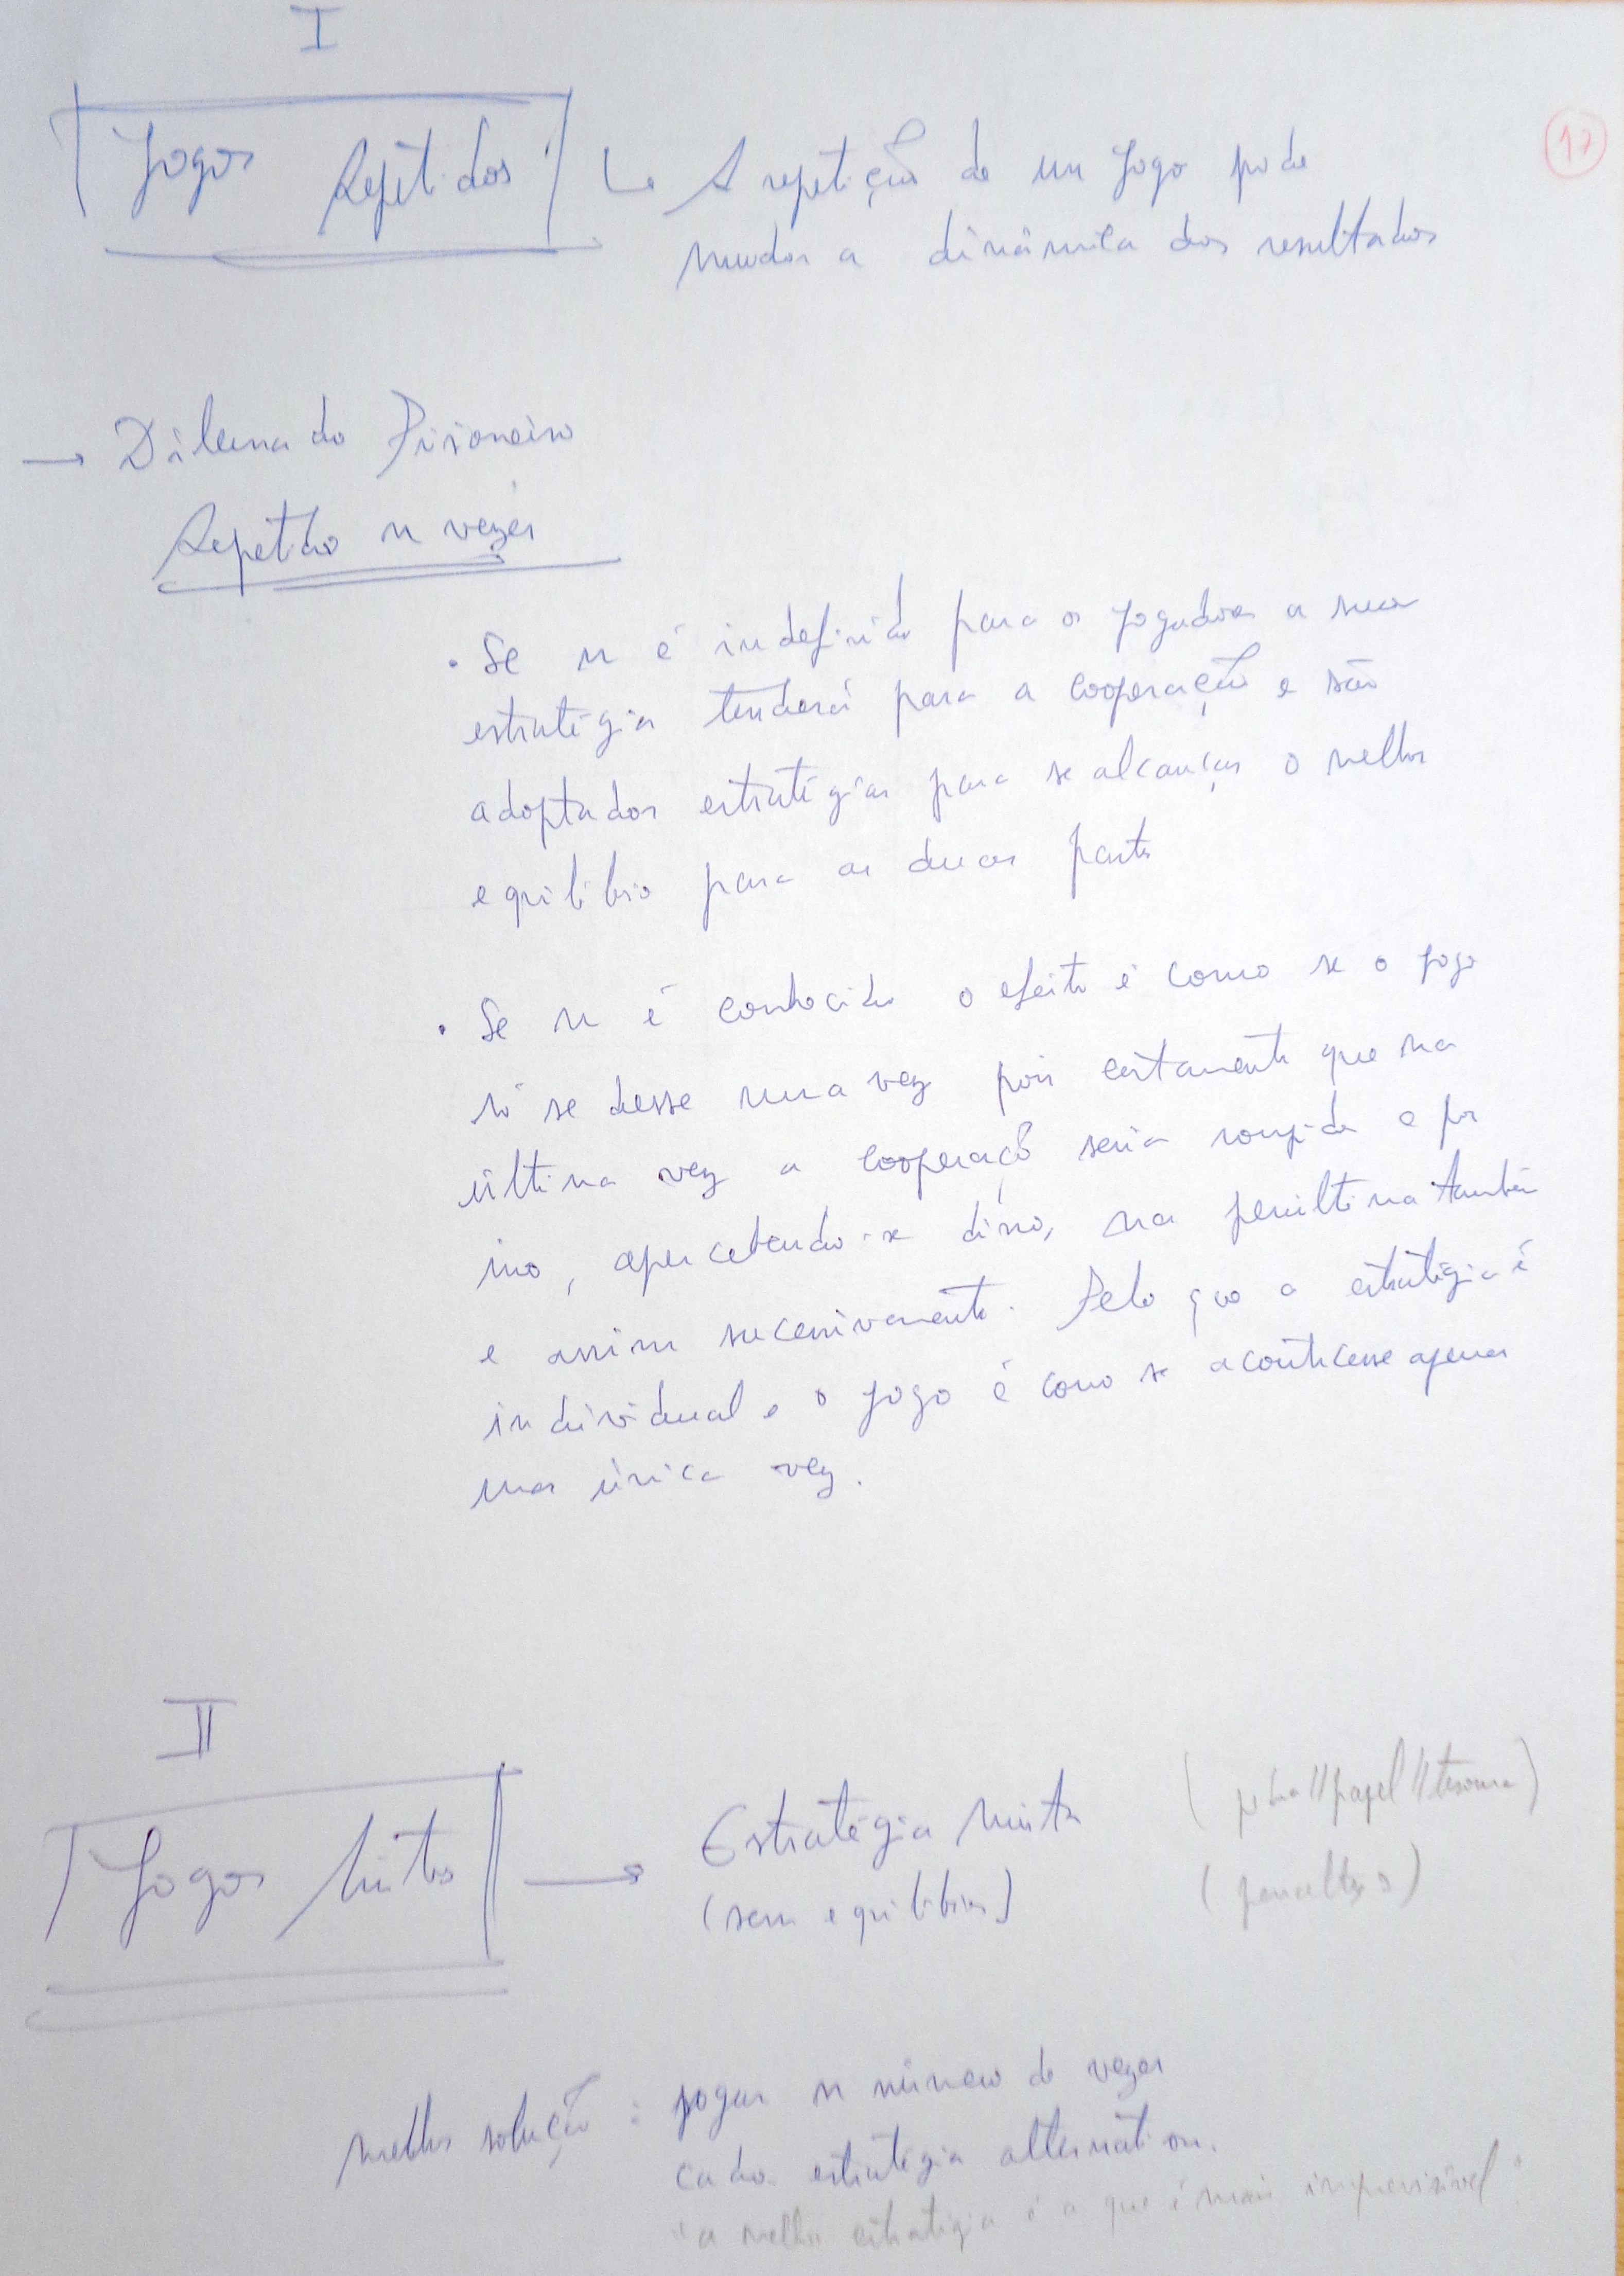 I
17
Jogos Repetidos
↳ A repetição de um jogo pode
mudar a dinâmica dos resultados
→ Dilema do Prisioneiro
Repetido n vezes
• Se n é indefinido para os jogadores a sua
estratégia tenderá para a cooperação e são
adoptadas estratégias para se alcançar o melhor
equilíbrio para as duas partes
• Se n é conhecido o efeito é como se o jogo
só se desse uma vez pois certamente que na
última vez a cooperaçõ seria rompida e por
isso, apercebendo-se disso, na penúltima também
e assim sucessivamente. Pelo que a estratégia é
individual e o jogo é como se acontecesse apenas
uma única vez.
II
Jogos Mistos → Estratégia Mista (pedra//papel//tesoura)
(sem equilíbrios) (penaltys)
melhor solução : jogar n número de vezes
cada estratégia alternativa.
"a melhor estratégia é a que é mais imprevisível"